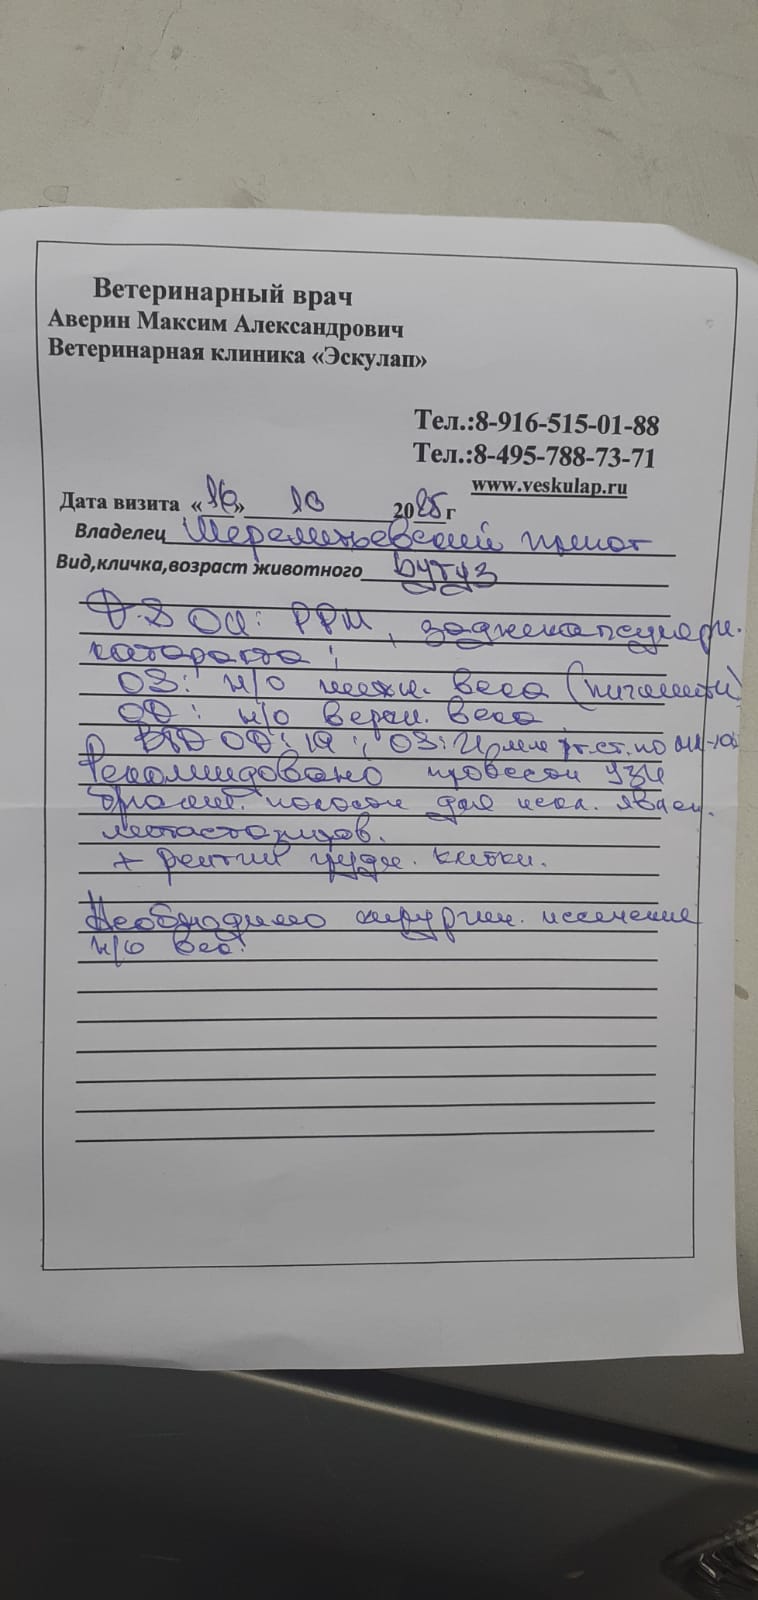 Ветеринарный врач
Аверин Максим Александрович
Ветеринарная клиника «Эскулап»
Тел.:8-916-515-01-88
Тел.:8-495-788-73-71
www.veskulap.ru
Дата визита «16» 10 2025г
Владелец Шереметьевский приют
Вид,кличка,возраст животного Бутуз
D.S OU: PPM, заднекапсулярн.
катаракта;
OS: н/о нижн. века (пигментн)
OD: н/о верхн. века
OD: 19; OS: 21 мм рт.ст. по
Рекомендовано провести УЗИ
брюшн. полости для искл.
метастазидов.
+ рентген грудн. клетки.
Необходимо хирургич. иссечение
н/о век!